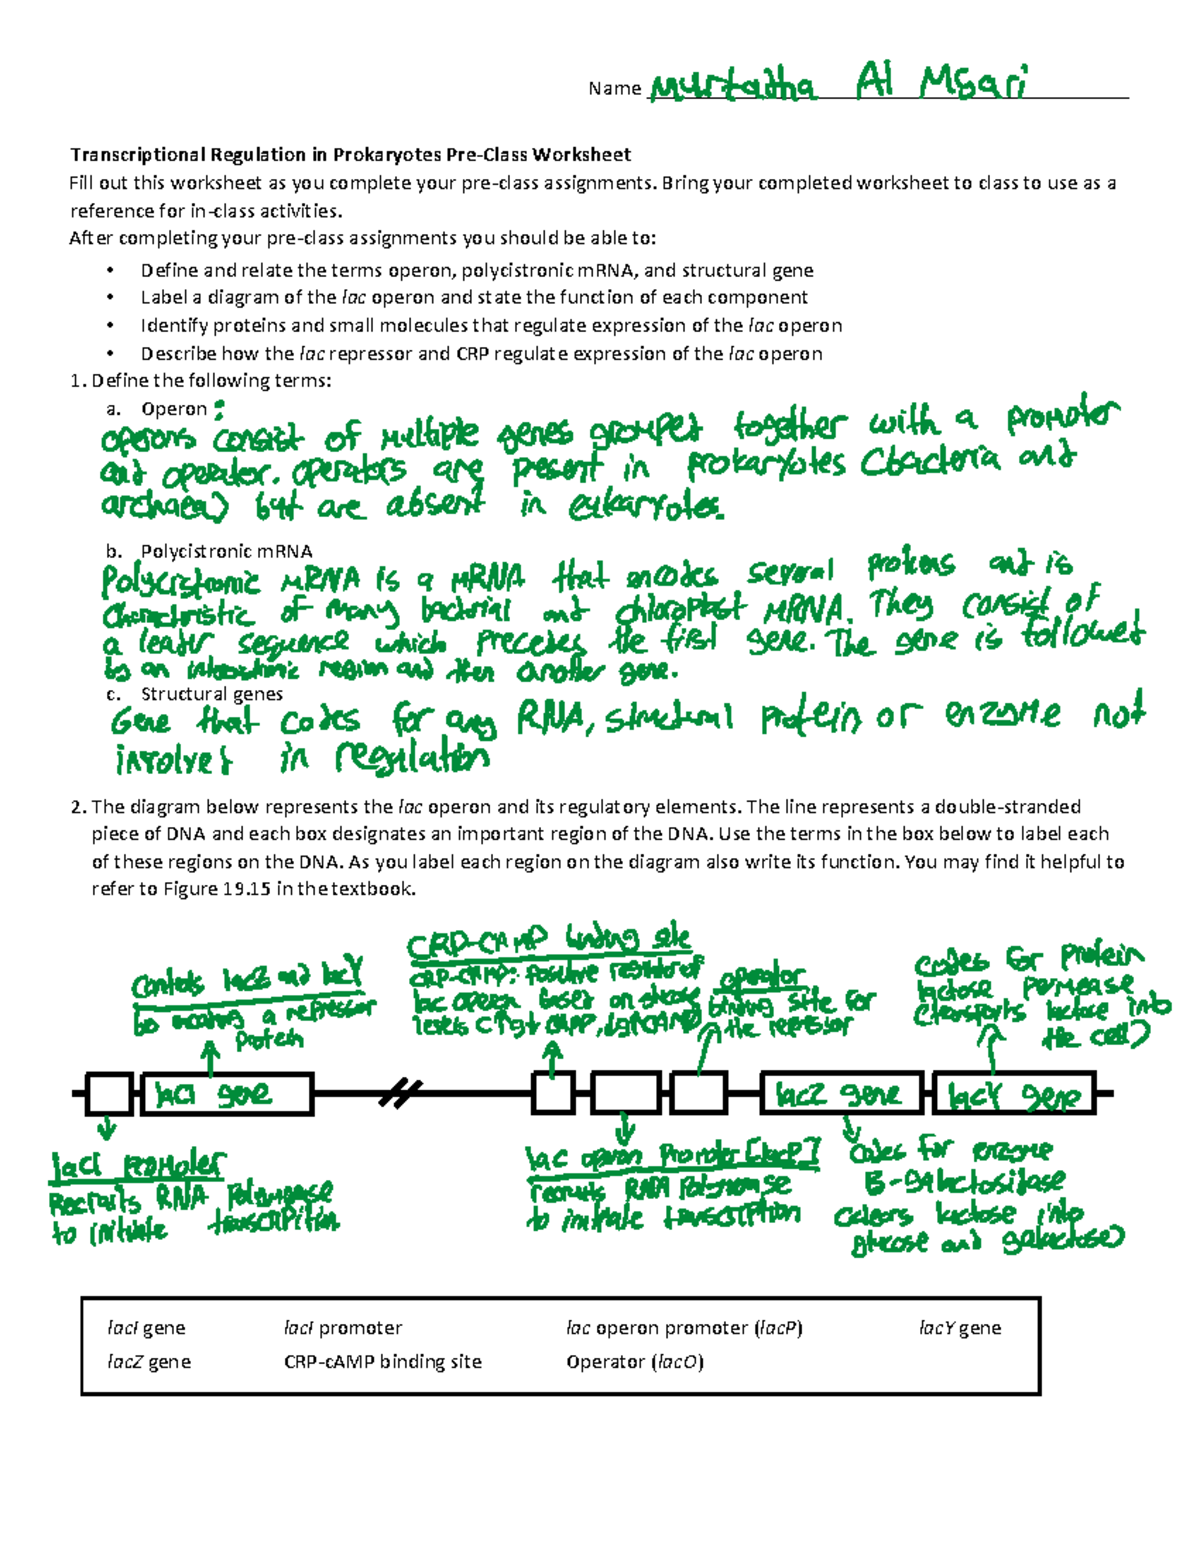 Name Murtadha Al Msari
Transcriptional Regulation in Prokaryotes Pre-Class Worksheet
Fill out this worksheet as you complete your pre-class assignments. Bring your completed worksheet to class to use as a
reference for in-class activities.
After completing your pre-class assignments you should be able to:
• Define and relate the terms operon, polycistronic mRNA, and structural gene
• Label a diagram of the lac operon and state the function of each component
• Identify proteins and small molecules that regulate expression of the lac operon
• Describe how the lac repressor and CRP regulate expression of the lac operon
1. Define the following terms:
a. Operon :
operons consist of multiple genes grouped together with a promoter
and operator. operators are present in prokaryotes (bacteria and
archaea) but are absent in eukaryotes.
b. Polycistronic mRNA
Polycistronic mRNA is a mRNA that encodes several proteins and is
characteristic of many bacterial and chloroplast mRNA. They consist of
a leader sequence which precedes the first gene. The gene is followed
by an intercistronic region and then another gene.
c. Structural genes
Gene that codes for any RNA, structural protein or enzyme not
involved in regulation
2. The diagram below represents the lac operon and its regulatory elements. The line represents a double-stranded
piece of DNA and each box designates an important region of the DNA. Use the terms in the box below to label each
of these regions on the DNA. As you label each region on the diagram also write its function. You may find it helpful to
refer to Figure 19.15 in the textbook.
Controls lacZ and lacY
by encoding a repressor
protein
CRP-CAMP binding site
CRP-CAMP: positive regulator of
lac operon based on glucose
levels
operator
binding site for
the repressor
codes for protein
lactose permease
(transports lactose into
the cell)
lacI gene
lacZ gene
lacY gene
lacI promoter
Recruits RNA Polymerase
to initiate transcription
lac operon Promoter [lacP]
recruits RNA Polymerase
to initiate transcription
codes for enzyme
B-galactosidase
cleaves lactose into
glucose and galactose)
lacI gene lacI promoter lac operon promoter (lacP) lacY gene
lacZ gene CRP-cAMP binding site Operator (lacO)